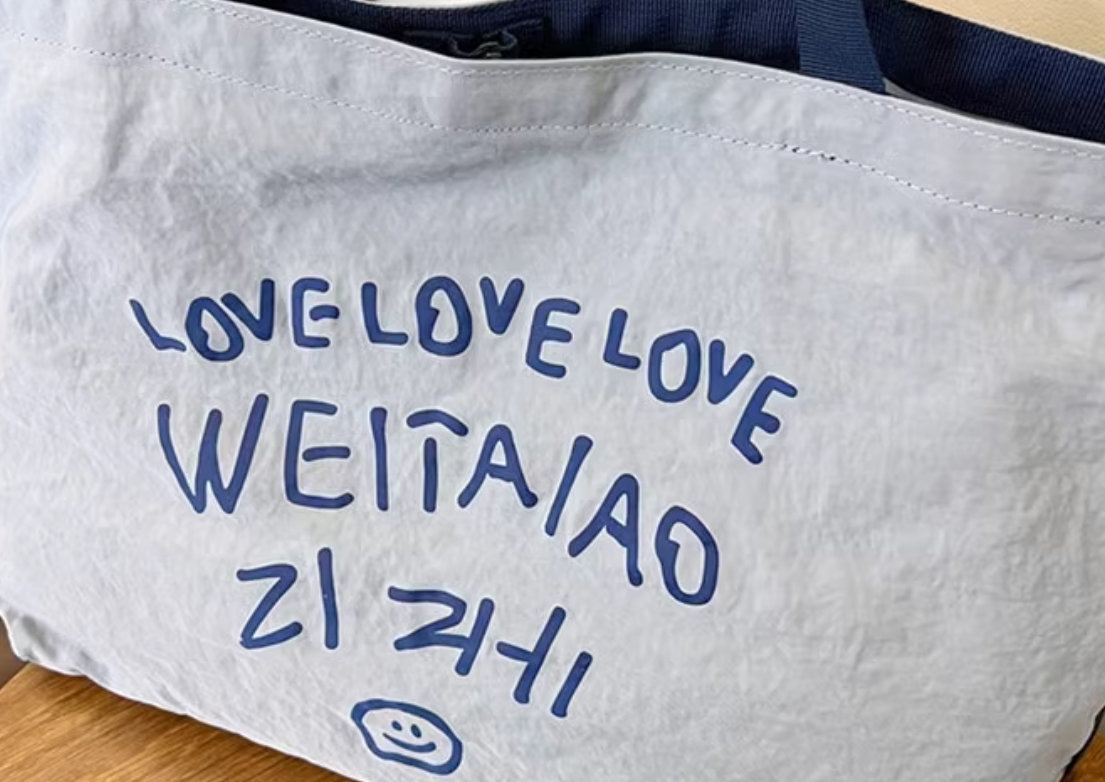 LOVE LOVE LOVE
WEITAIAO
ZI ZHI